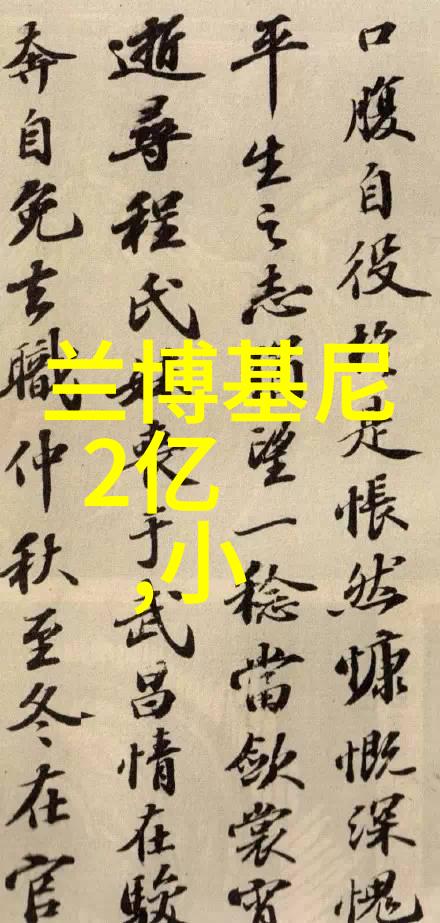 口腹自役 是悵然慷慨深愧
平生之志 望一稔當斂裳宵
逝尋程氏妹喪于武昌情在駿
奔自免去職仲秋至冬在官
兰博基尼
2亿
,小